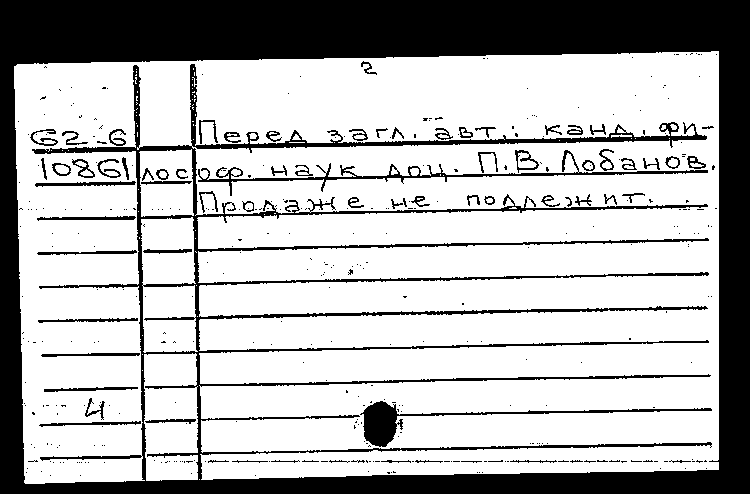 2
62-6 Перед загл. авт.: канд. фи-
10861 лософ. наук доц. П.В. Лобанов.
Продаже не подлежит.
4